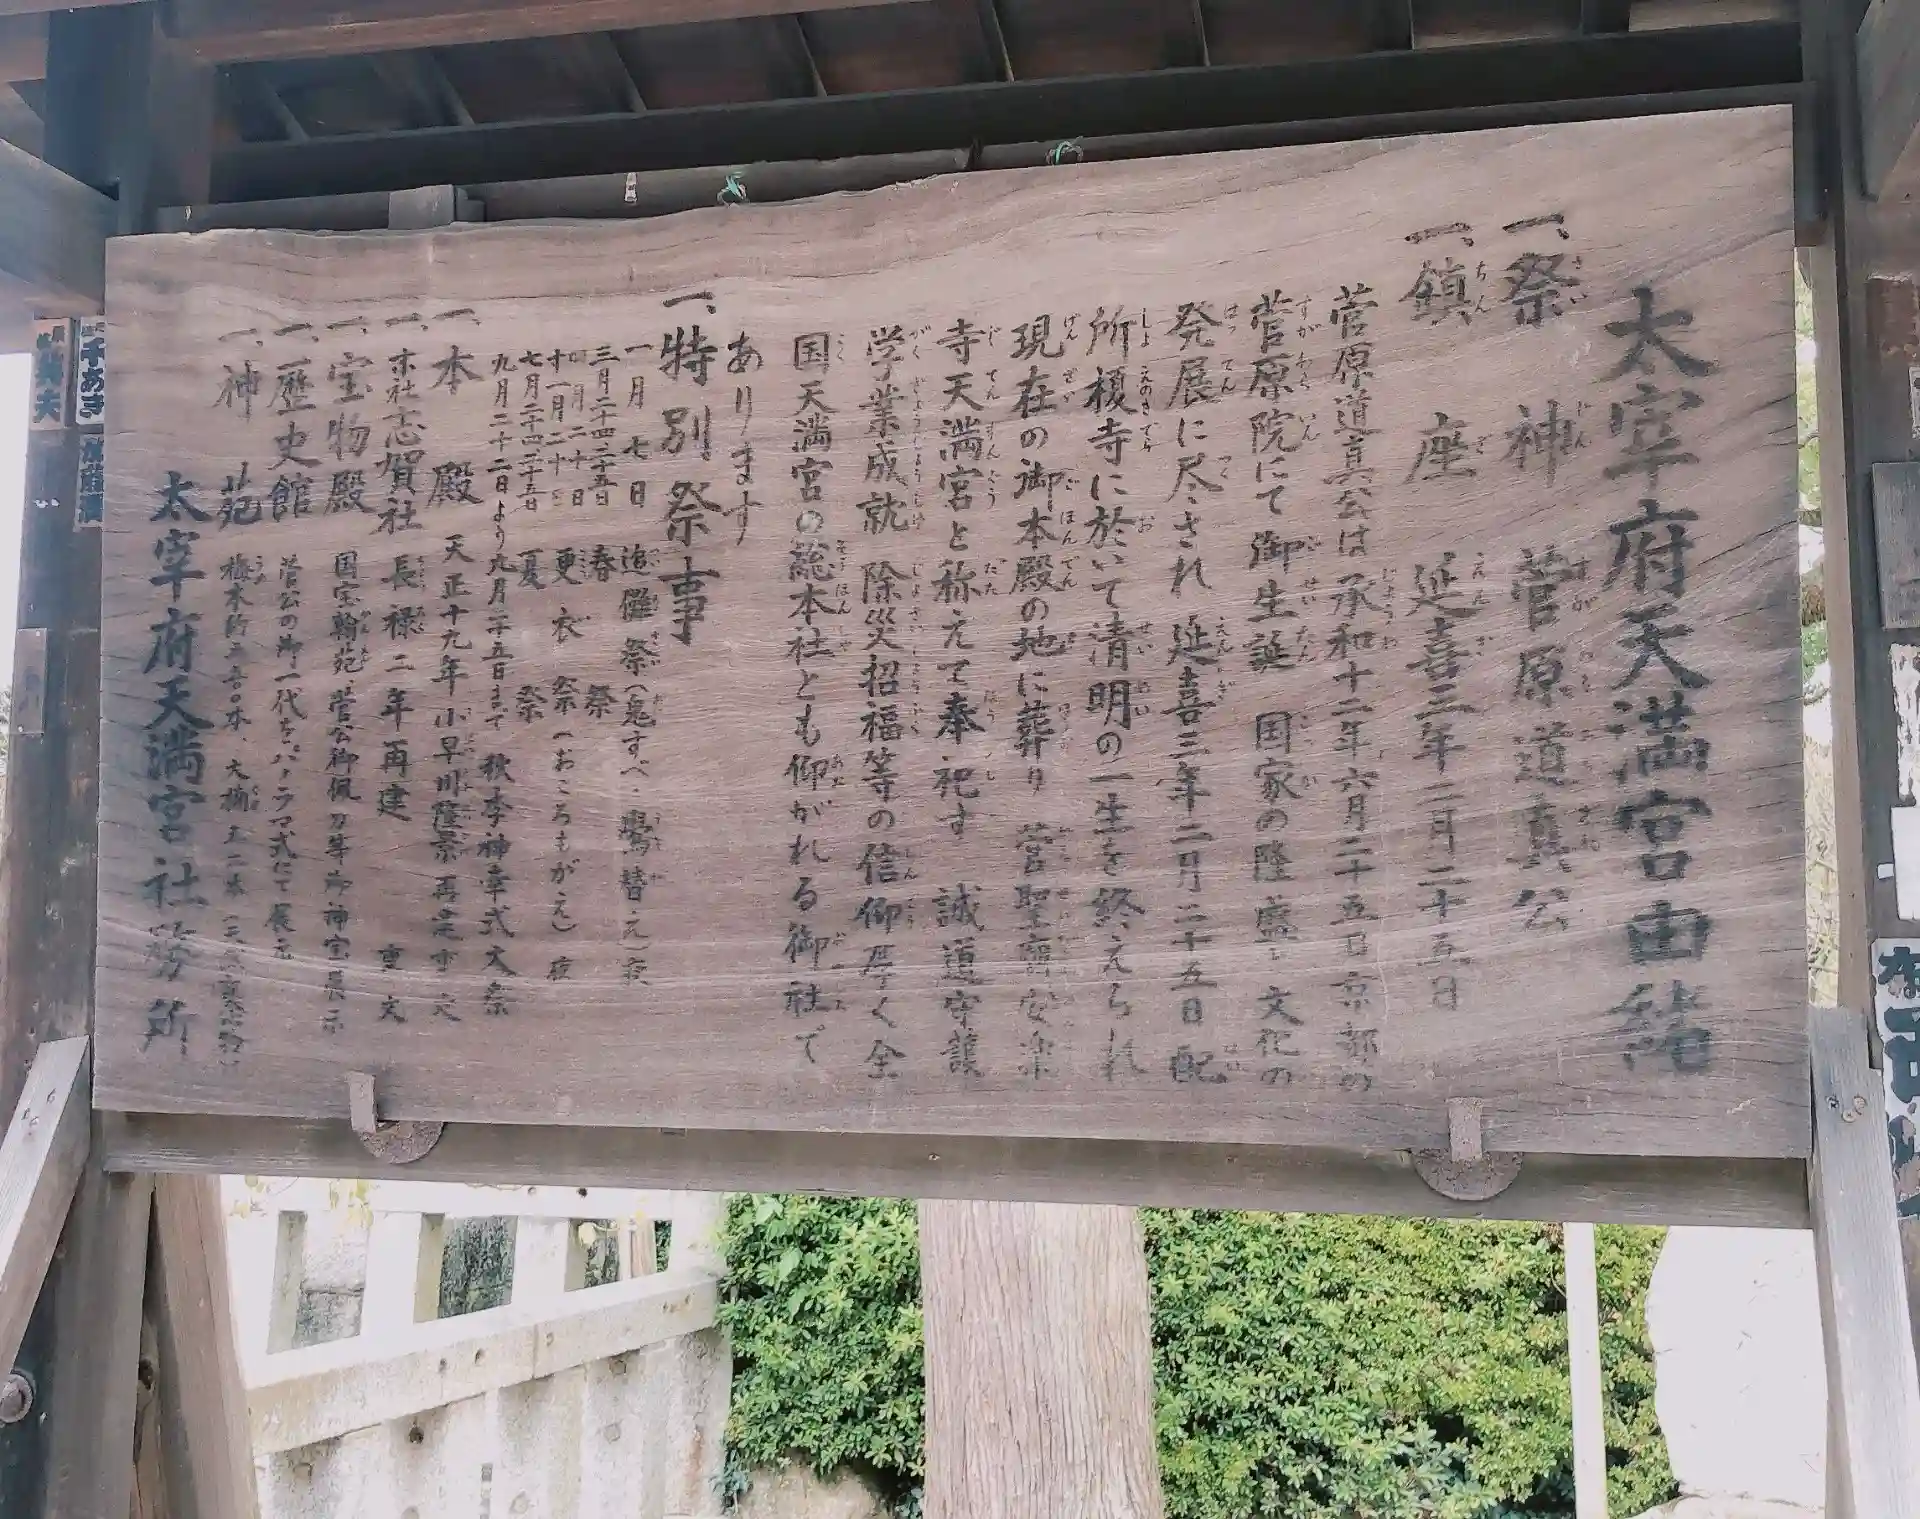 太宰府天満宮由緒
一、祭神 菅原道真公
一、鎮座 延喜三年二月二十五日
菅原道真公は承和十二年六月二十五日京都の
菅原院にて御生誕 国家の隆盛と文化の
発展に尽され 延喜三年二月二十五日配
所榎寺に於いて清明の一生を終えられ
現在の御本殿の地に葬り 菅聖廟安楽
寺天満宮と称えて奉祀す 誠道守護
学業成就 除災招福等の信仰厚く全
国天満宮の総本社とも仰がれる御社で
あります
一、特別祭事
一月七日 追儺祭(鬼すべ・鷽替え)夜
三月二十四二十五日 春祭
四月二十日
十一月二十日 更衣祭(おころもがえ)夜
七月二十四二十五日 夏祭
九月二十二日より九月二十五日まで 秋季神幸式大祭
一、本殿 天正十九年小早川隆景再建 重文
一、末社志賀社 長禄二年再建 重文
一、宝物殿 国宝翰苑、菅公御佩刀等御神宝展示
一、歴史館 菅公の御一代をパノラマ式にて展示
一、神苑 梅木約 本、大楠
太宰府天満宮社務所